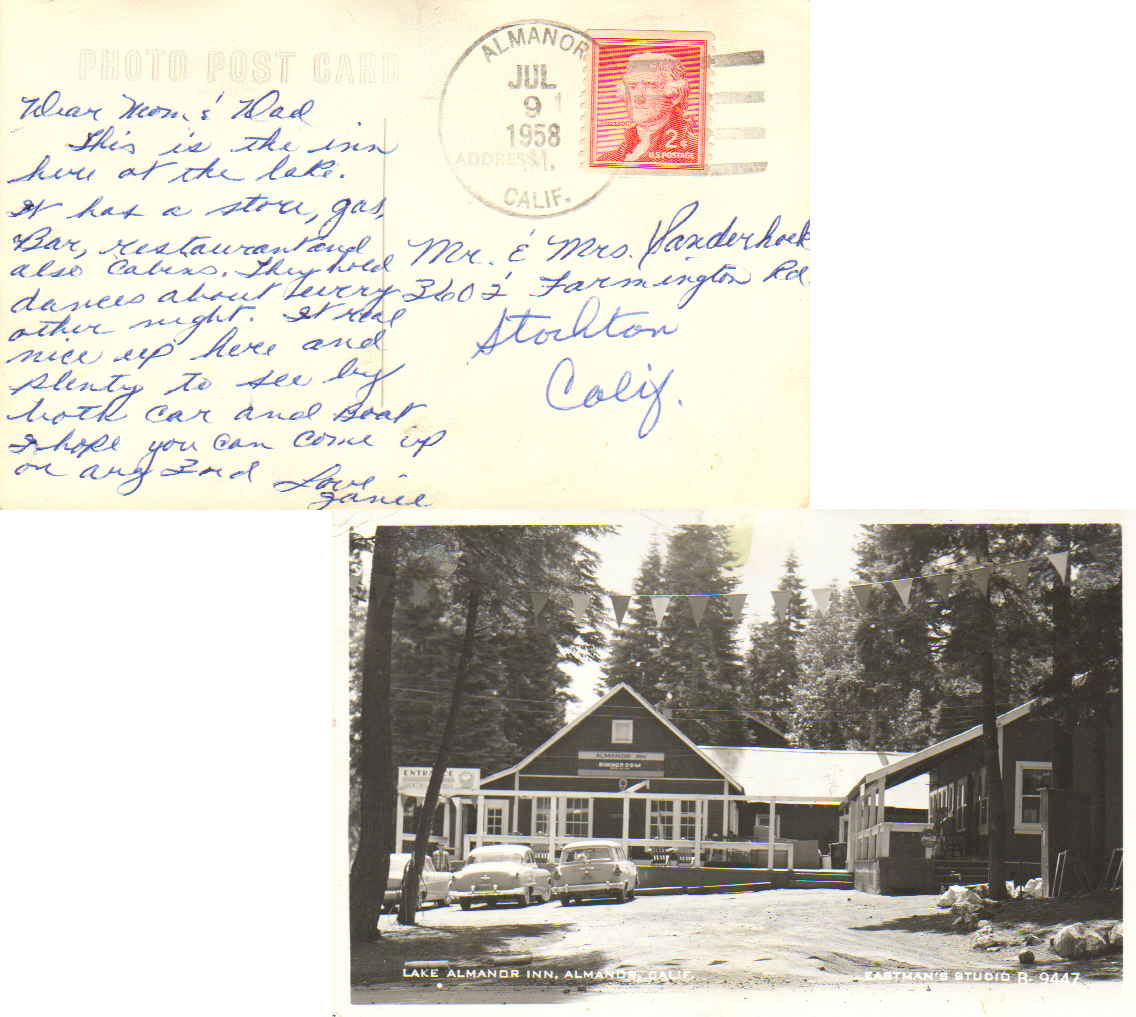 PHOTO POST CARD
ALMANOR
JUL
9
1958
M.
CALIF.
ADDRESS
2¢
U.S. POSTAGE
Dear Mom & Dad
This is the inn
here at the lake.
It has a store, gas,
Bar, restaurant and
also Cabins. They hold
dances about every
other night. It real
nice up here and
plenty to see by
both car and Boat
I hope you can come up
on aug 2nd Love
Janie
Mr. & Mrs. Vanderhoek
3602 Farmington Rd.
Stockton
Calif.
ENTRANCE
ALMANOR INN
DINING ROOM
LAKE ALMANOR INN, ALMANOR, CALIF.
EASTMAN'S STUDIO B-9447